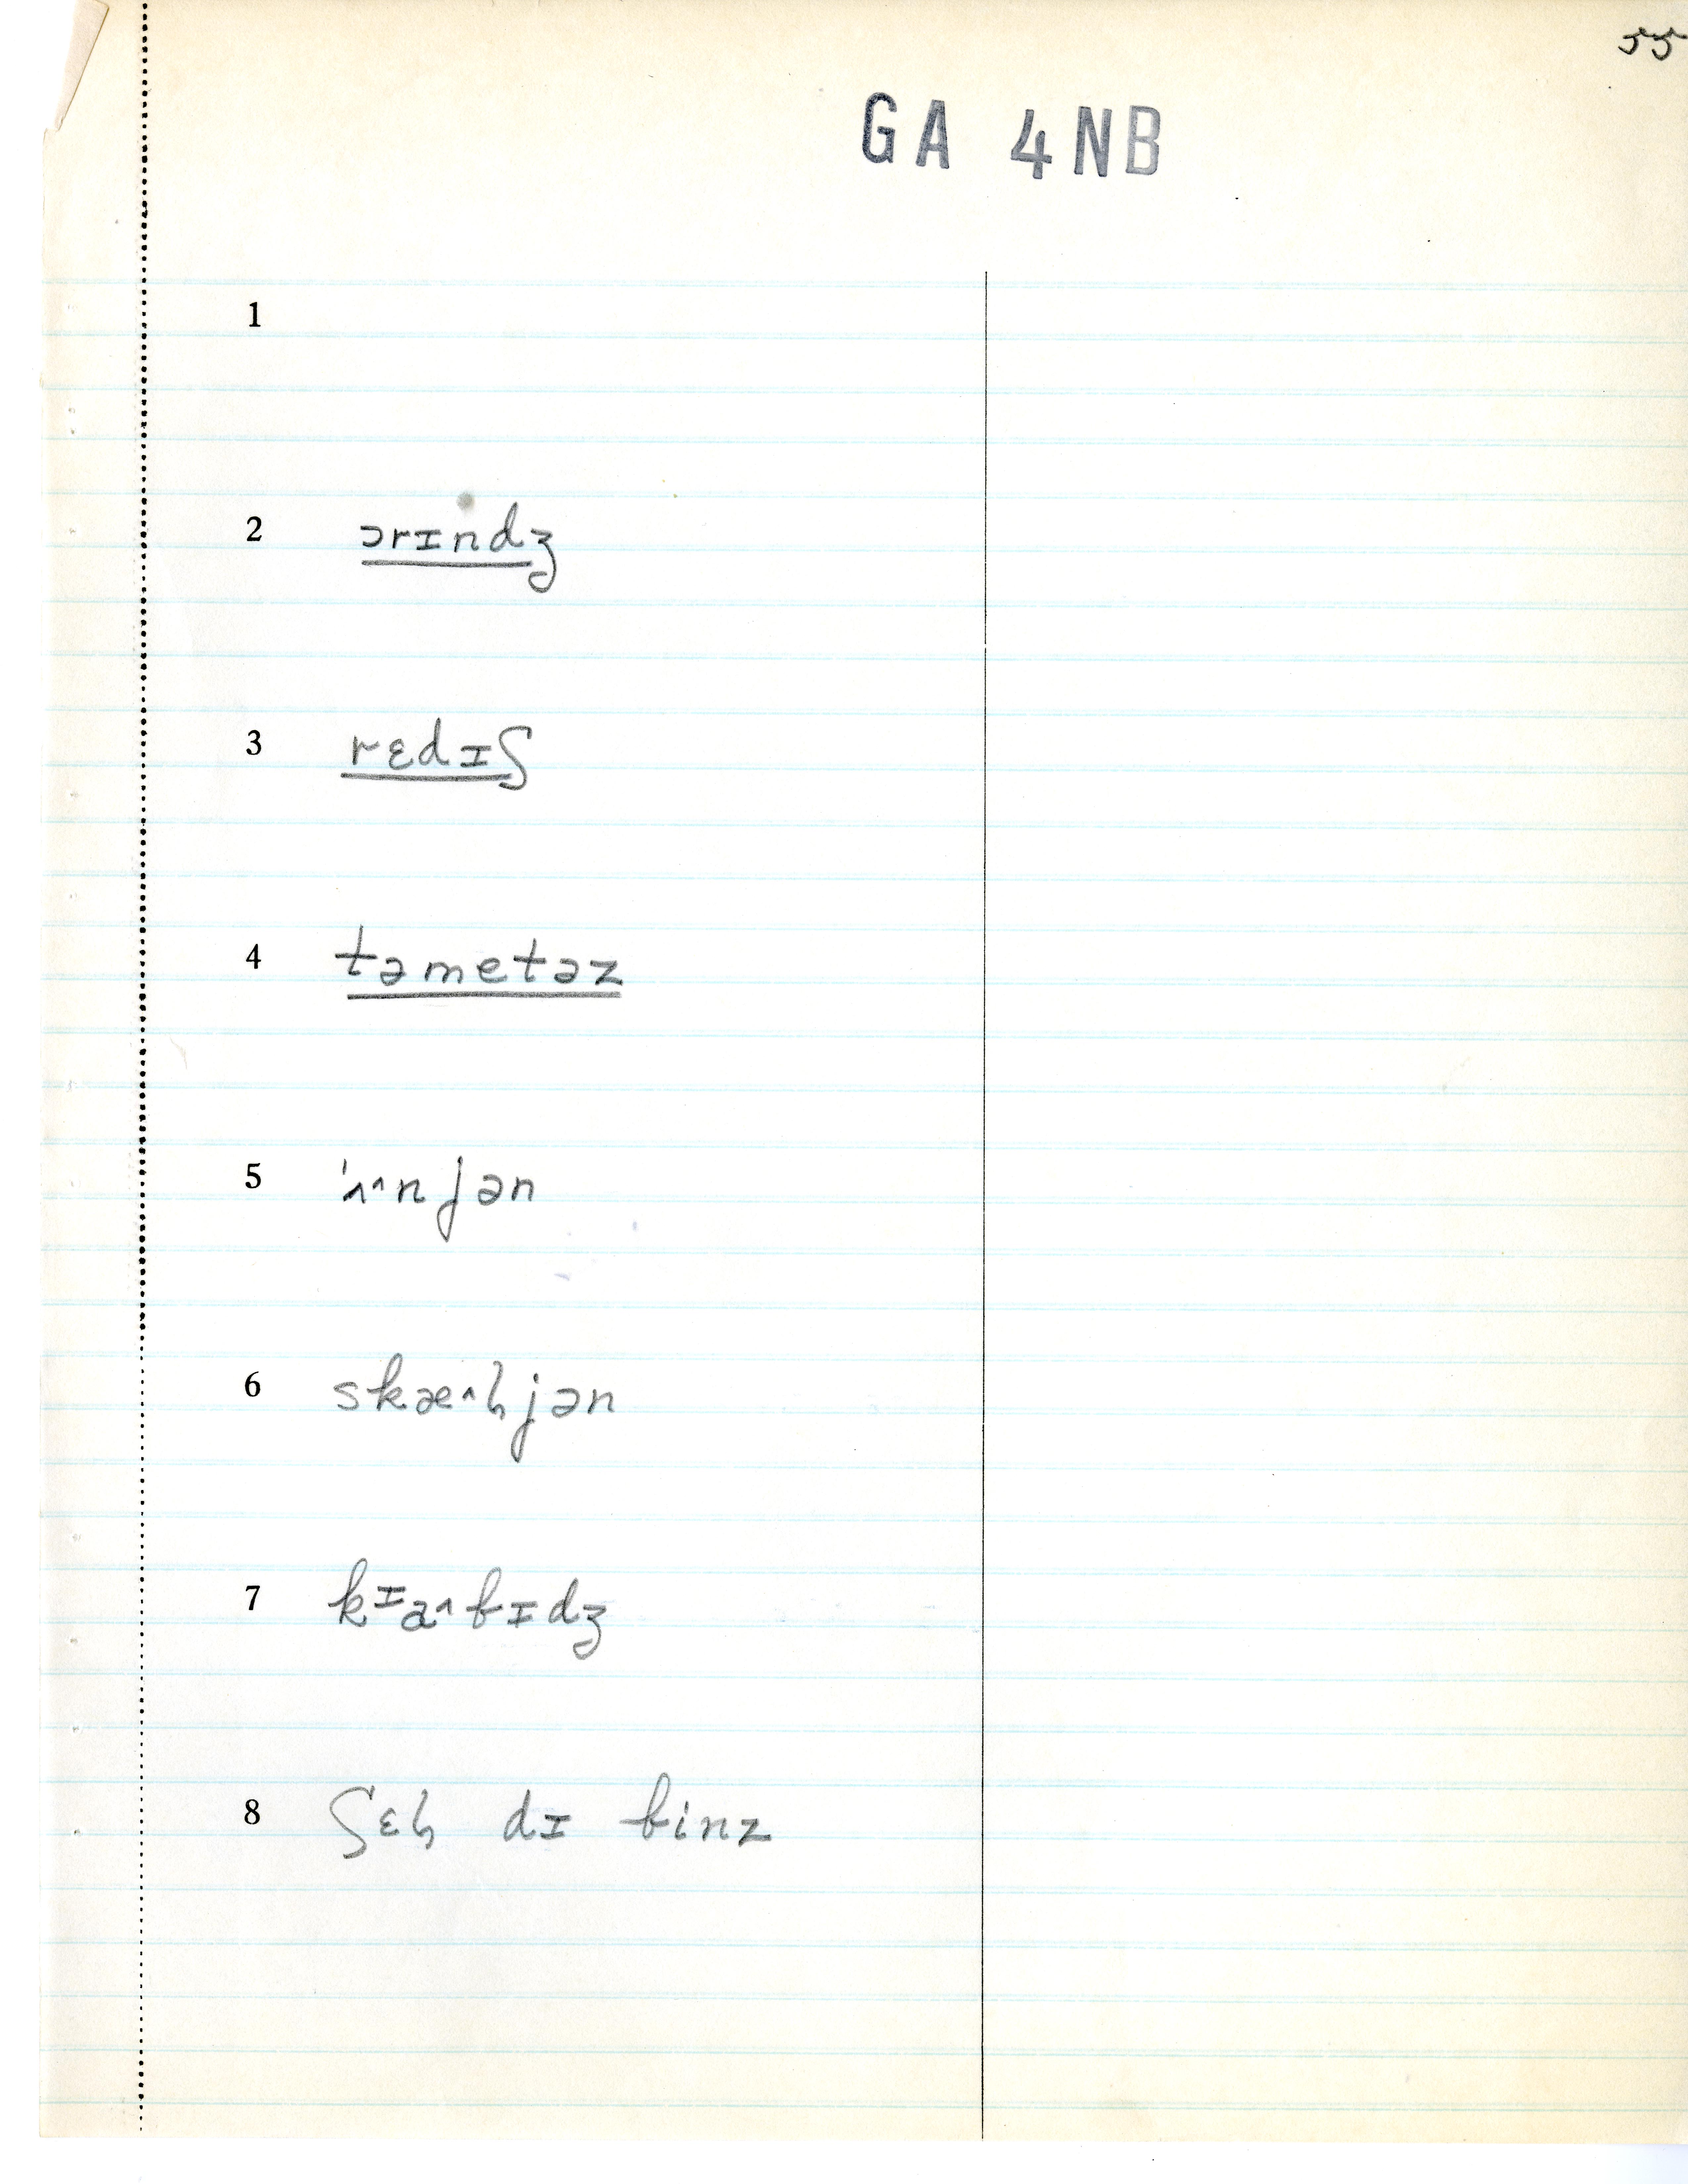 55
GA 4NB
1
2 ɔrɪndʒ
3 rɛdɪʃ
4 təmetəz
5 'ʌ^njən
6 skæ^ljən
7 kɪa^bɪdʒ
8 ʃɛl dɪ binz